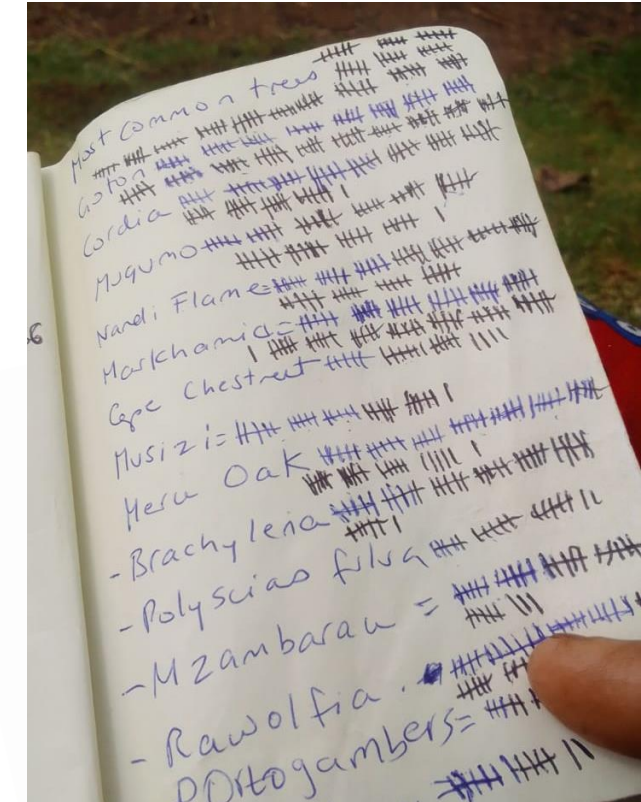 6
Most common trees
Coton
Cordia
Mugumo
Nandi Flame=
Markhamia=
Cape Chestnut
Musizi=
Meru Oak
- Brachylena
- Polyscias fulva
- Mzambarau =
- Rawolfia.
Portogambers=